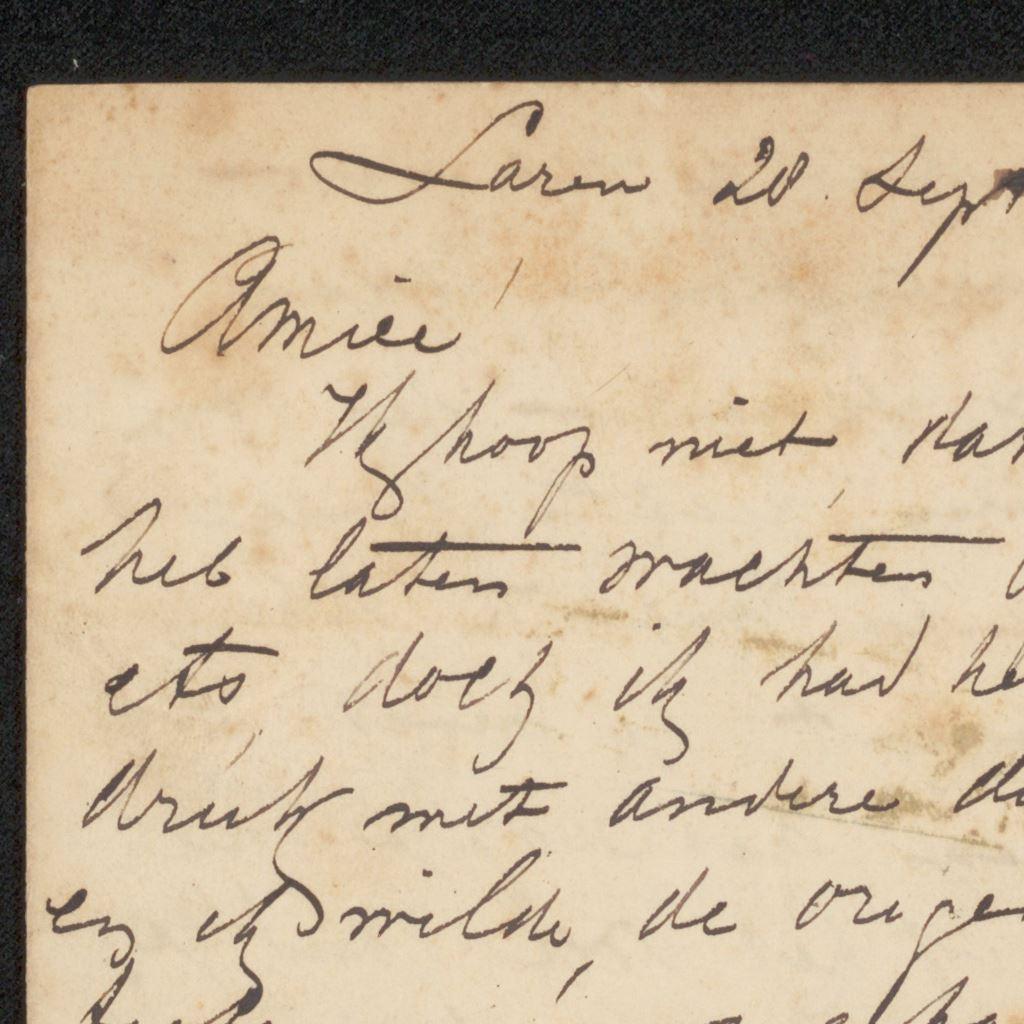 Laren 28 Sept
Amice
Ik hoop niet dat
heb laten wachten
ets, doch ik had he
druk met andere di
en ik wilde, de orige